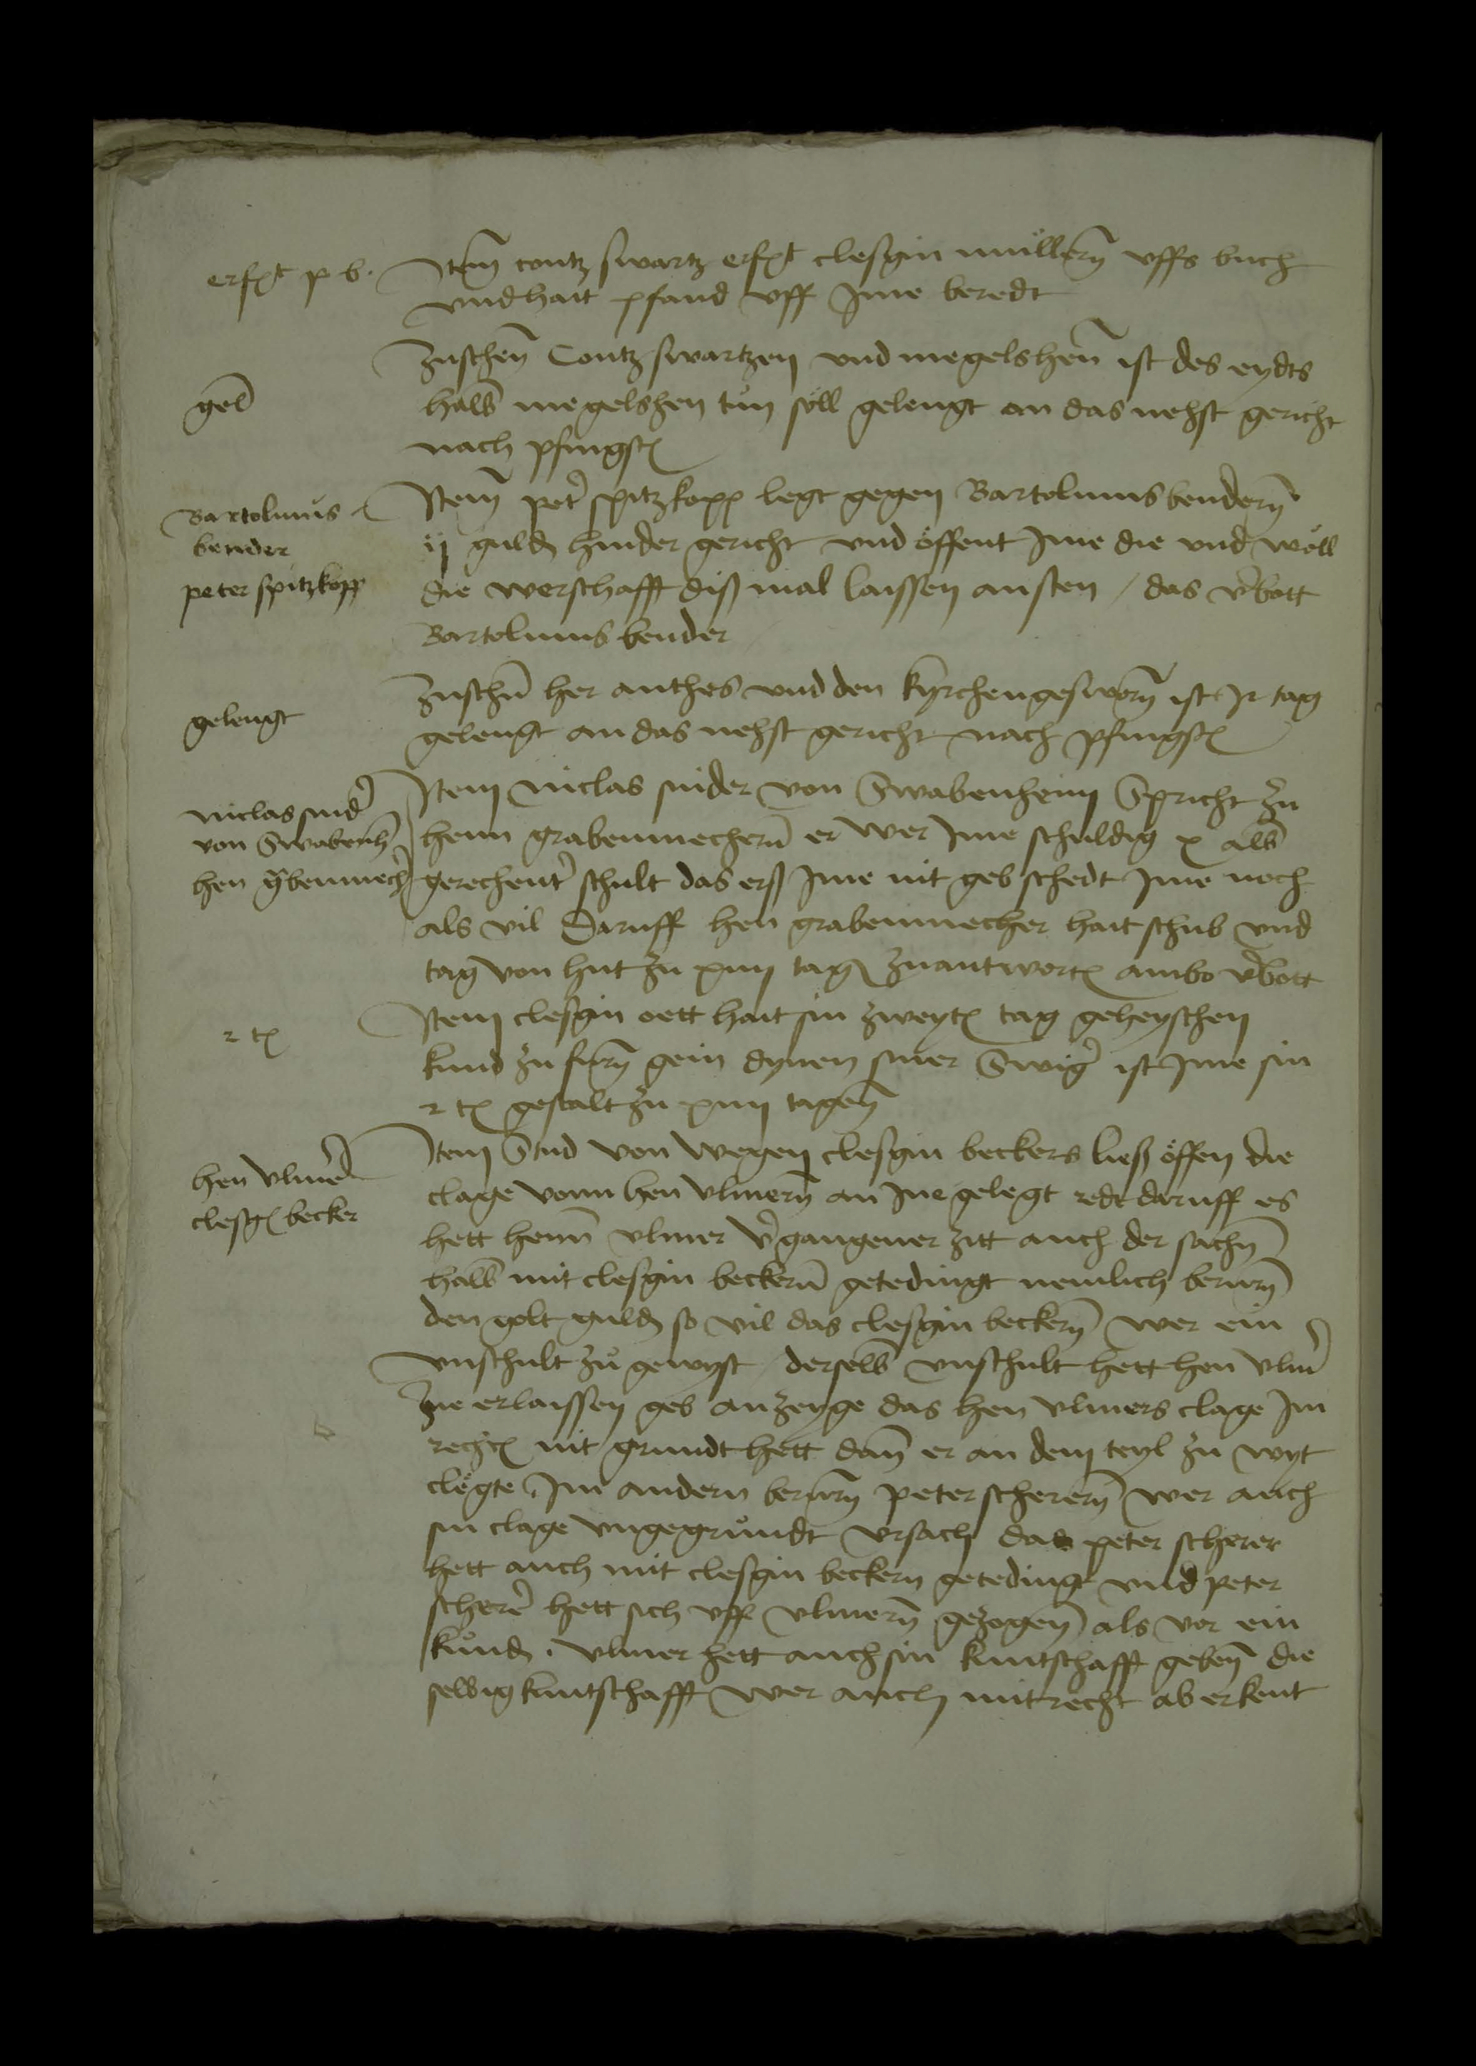 erfolgt p b.
Item contz swartz erfolgt clesgin mollern uffs buch
und hait pfand uff Ime beredt
Zuschen Contz swartzen und megelshen ist des eydts
gel
halb megelshen tun soll gelengt an das nehst gericht
nach pfingst
Bartolmus
bender
peter spitzkopp
Item peter spitzkopp legt gegen Bartolmus bendern
ij guld hinder gericht und offent Ime die und woll
die werschafft diß mal laissen ansten / das verbott
Bartolmus bender
gelengt
Zuschen her anthes und den kyrchengesworn ist Ir tag
gelengt an das nehst gericht nach pfingst
niclas snider
von Swabenh
hen grabenmecher
Item niclas snider von Swabenheim Spricht zu
henn grabenmechern er wer Ime schuldig x alb
gerechenter schult das erß Ime nit geb schedt Ime noch
als vil Daruff hen grabenmecher hait schub und
tag von hut zu xiiij tag zuantwort ambo verbott
2 t
Item clesgin oett hait sin zweyt tag geheyschen
kund zu furn gein dynen siner Swiger ist Ime sin
2 t gestalt zu xiiij tagen
hen ulmer
clesg becker
Item Snd von wegen clesgin beckers ließ offen die
clage vonn hen ulmern an Ine gelegt redt daruff es
hett henn ulmer vergangener zitt auch der sachn
halb mit clesgin beckern getedingt nemlich berurn
den golt guld so vil das clesgin beckern wer ein
unschult zu gewyst / derselb unschult hett hen ulmer
Ine erlaissen geb anzeyge das hen ulmers clage Im
recht nit grundt hett dan er an dem teyl zu wyt
clegte. Im andern berurn peter scherern wer auch
sin clage ungegrundt ursach das peter scherer
hett auch mit clesgin beckern getedingt und peter
scherer hett sich uff ulmern gezogen als vor ein
kund. ulmer hett auch sin kuntschafft geben die
selbig kuntschafft wer auch mit recht ab erkent